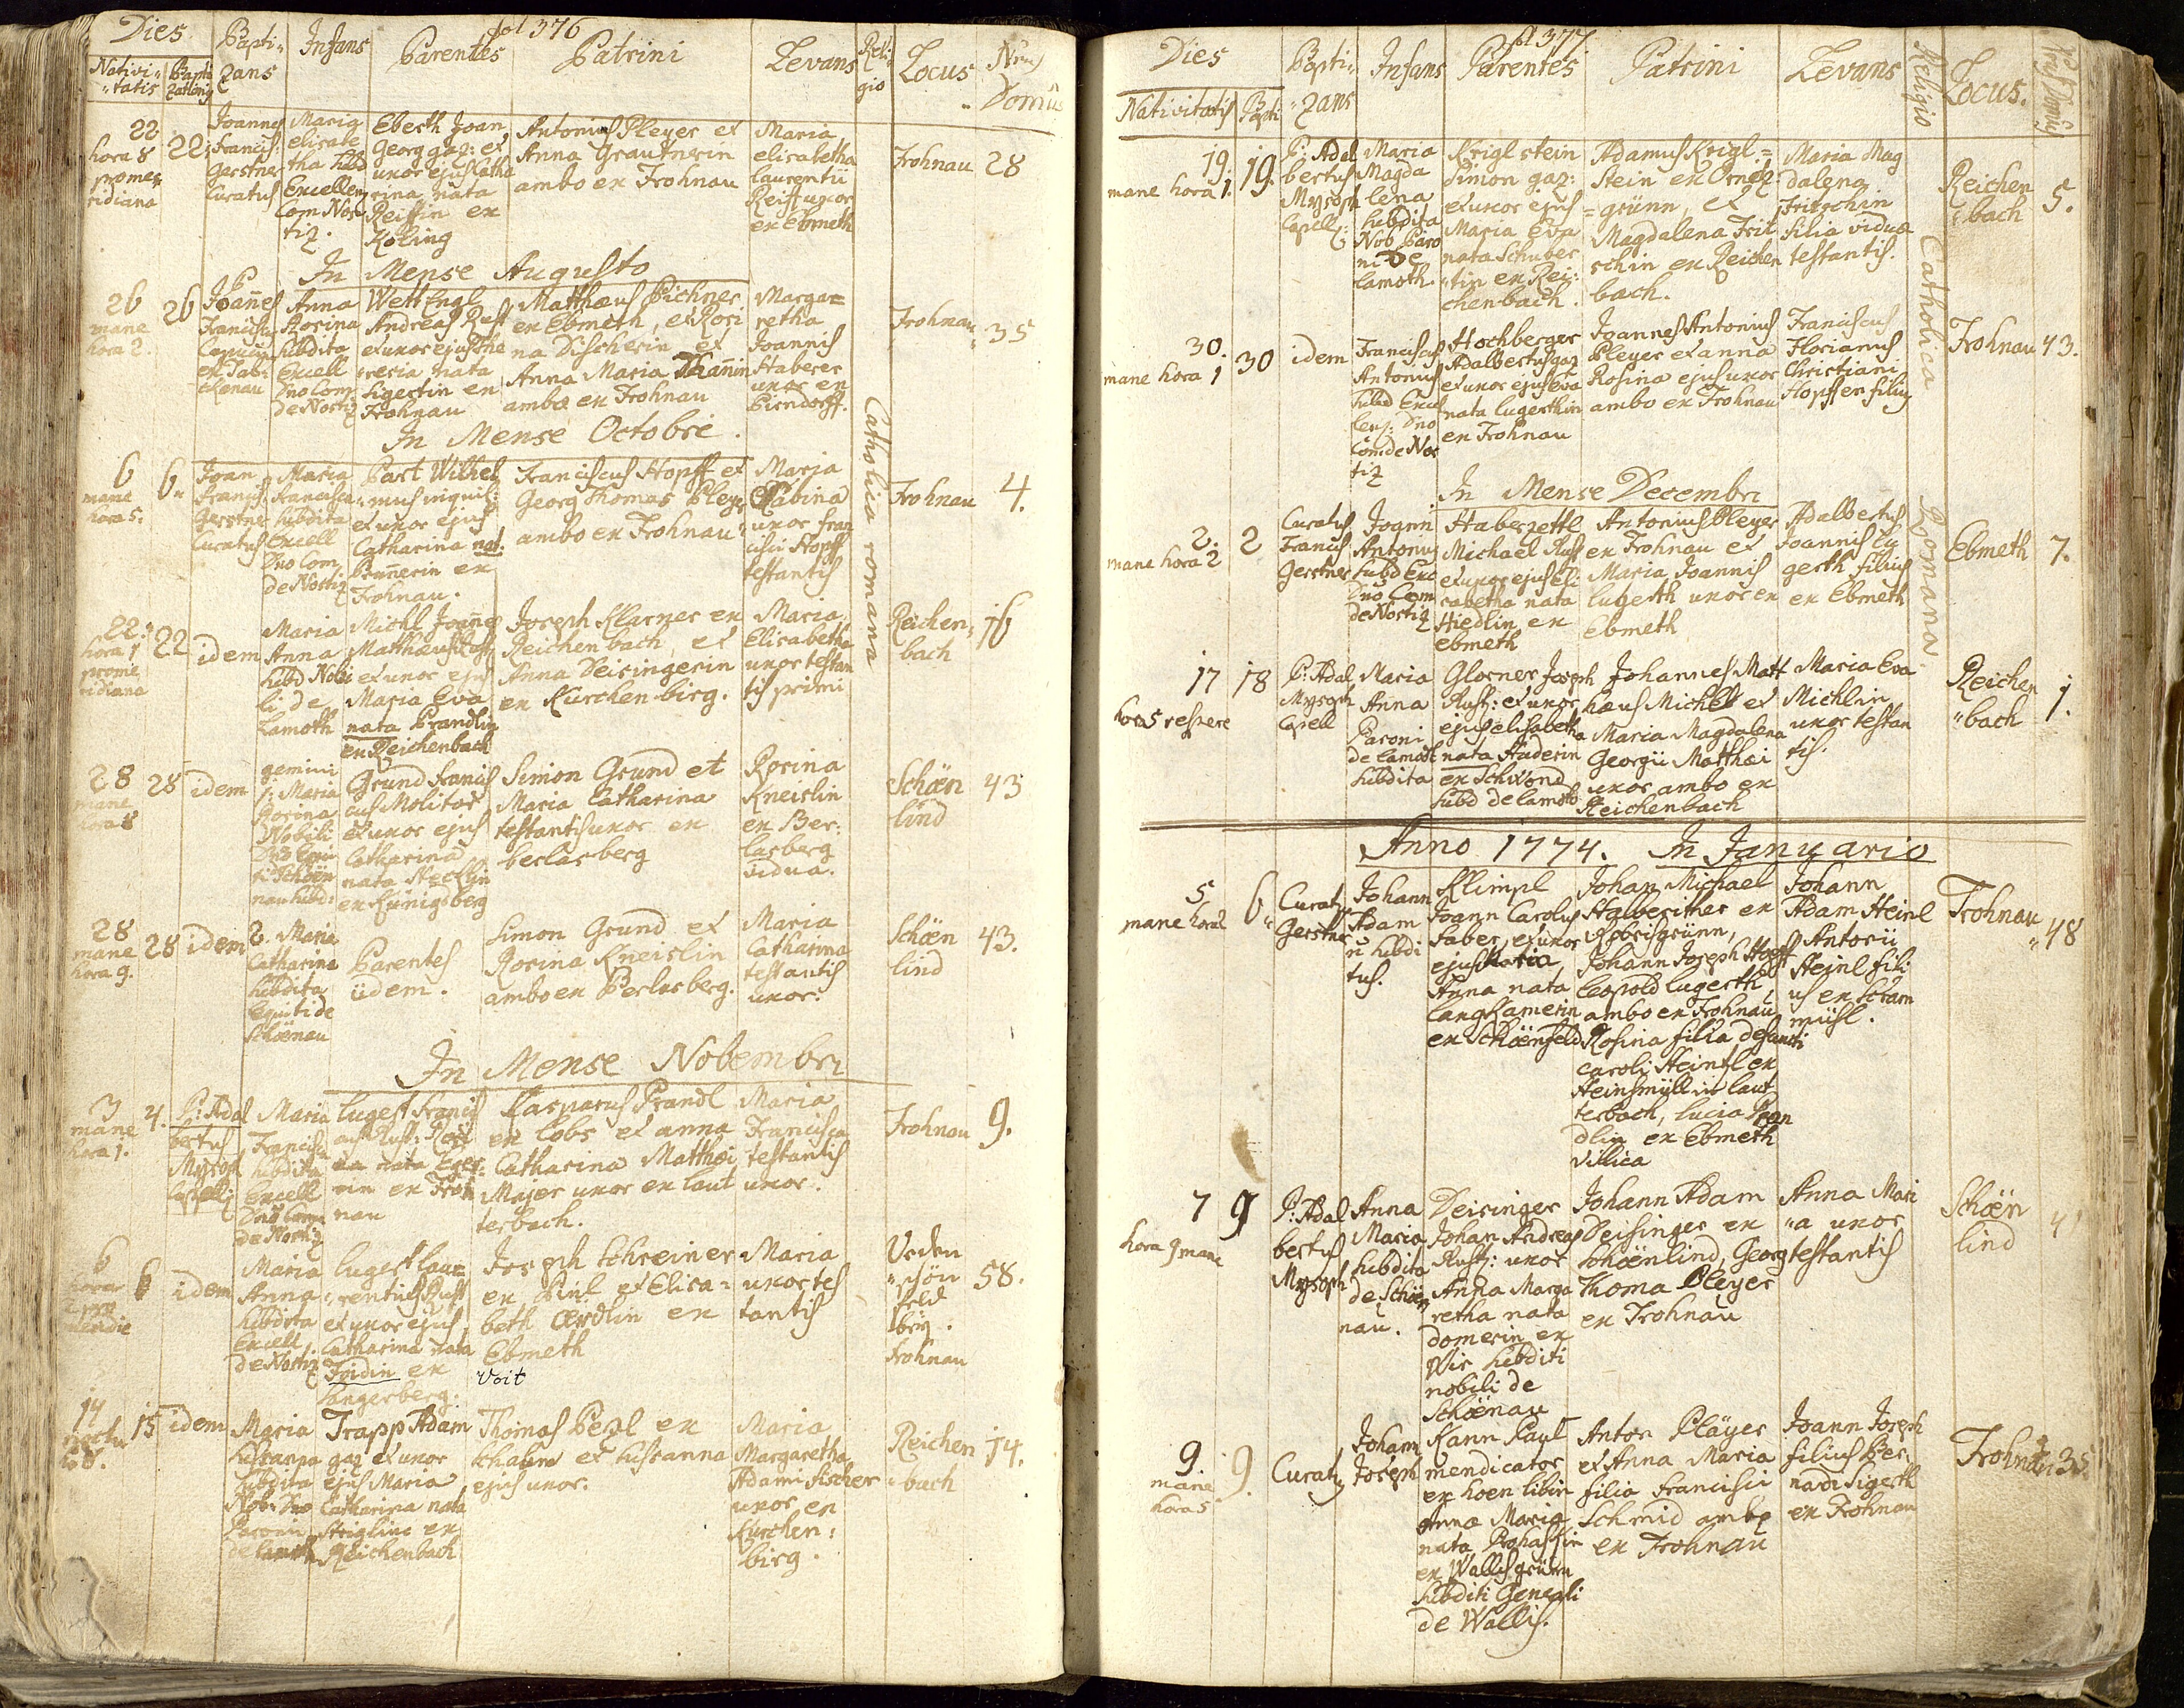 fol 376
Dies
Bapti„
zans
Infans
Parentes
Patrini
Levans
Reli
gio
Locus
Nrus
Domus
Nativi„
„tatis
22
hora 8
22
Joannes
Francis:
Gerstner
Curatus
Maria
elisabe
tha subd
Excellen
Com Nos
tiz.
Eberth Joan
Georg gaz: et
uxor ejus Catha
rina nata
Reissin ex
Köling
Antonius Pleyer et
Anna Grautnerin
ambo ex Frohnau
Maria
elisabetha
Laurentii
Reiss uxor
ex Ebmeth
Frohnau
28
In Mense Augusto
26
mane
hora 2.
26
P
Joañes
Anna
Rosina
subdita
Excell
Dno Com
de Nostiz
Andreas
et uxor ejus The
resia nata
Sigertin ex
Frohnau
Matthæus Pichner
ex Ebmeth, et Rosi
na Discherin et
Anna Maria
ambæ ex Frohnau
Marga=
retha
Joannis
Haberer
uxor ex
Birndorff.
Frohnau
35
In Mense Octobri.
6
mane
hora 5.
6.
Joan
Francis
Gerstner
Curatus
Maria
Francisca
subdita
Excell
Dno Com
de Nostiz
Part Wilhel
„mus inquil:
et uxor ejus
Catharina nat.
ex
Frohnau.
Franciscus Hopff et
Georg Thomas Pleyer
ambo ex Frohnau
Maria
Sabina
uxor fran
cisci Hopff
testantis
Frohnau
4.
Catholica romana
22.
hora 1
22
idem
Maria
Anna
subd Nobi
li de
Lamoth
Michl Joañes
Matthæus Rust
et uxor ejus
Maria Eva
nata Prandlin
ex Reichenbach
Joseph Klarner ex
Reichenbach, et
Anna Deisingerin
ex Kürchenbirg.
Maria
Elisabetha
uxor testan
tis primi
Reichen„
bach
16
28
mane
hora 8
28
idem
gemini
1: Maria
Rosina
Nobili
nau subd:
Grund Francis
cus Molitor
et uxor ejus
Catharina
nata
ex Künigsberg
Simon Grund et
Maria Catharina
testantis uxor ex
berlasberg
Rosina
Kneislin
ex Ber:
lasberg
vidua.
Schœn
lind
43
28
mane
hora 9.
28
idem
2. Maria
Catharina
subdita
Equiti de
Schœnau
Parentes
iidem.
Simon Grund et
Rosina Kneislin
ambo ex Berlasberg.
Maria
Catharina
testantis
uxor.
Schœn
lind
43.
In Mense Nobembri
3
mane
hora 1.
4.
P: Adal
bertus
Mysoph
Maria
Francisca
subdita
Excell
Dno Com
de Nostiz
Lugert Francis
cus Rust: Rosi
na nata Eger:
rin ex Froh
nau
Kasparus Prandl
ex Lobs et anna
Catharina Matthæi
Majer uxor ex laut
terbach.
Maria
Francisca
testantis
uxor.
Frohnau
9.
6
hora
6
idem
Maria
Anna
subdita
Excell
de Nostiz
Lugert Lau=
„rentius Rust
et uxor ejus
Catharina nata
Fridin ex
Joseph Schreiner
ex Pirl et Elisa=
beth Œrdlin ex
Ebmeth
Voit
Maria
uxor tes
tantis
Frohnau
58.
14
15
idem
Maria
Susanna
subdita
Nob: Dno
Baroni
de Lamoth
Trapp Adam
gaz et uxor
ejus Maria
Catharina nata
Striglinn ex
Reichenbach
Thomas Pezl ex
Schaben et Susanna
ejus uxor.
Maria
Margaretha
Adami Fischer
uxor ex
Kürchen:
birg.
Reichen
„bach
14.
fol 377
Dies
Nativitatis
Bapti
Bapti„
„zans
Infans
Parentes
Patrini
Levans
Religio
Locus.
19.
mane hora 1.
19.
P: Adal
bertus
Mysoph
Capell:
Maria
Magda
lena
subdita
Nob Baro
ni De
Lamoth.
Krigl stein
Simon gaz:
et uxor ejus
Maria Eva
nata Schuber
„tin ex Rei:
chenbach.
Adamus Krigl:=
stein ex Ornez
=grünn, et
Magdalena Frit
schin ex Reichen
bach.
Maria Mag
dalena
Fritschin
filia viduæ
testantis.
Reichen
„bach
5.
Catholica Romana
30.
mane hora 1
30
idem
Franciscus
Antonius
Subd Excel
lenz: Dno
Com de Nos
tiz
Hochberger
Adalbertus gaz
et uxor ejus Eva
nata Lugerthin
ex Frohnau
Joannes Antonius
Pleyer et anna
Rosina ejus uxor
ambo ex Frohnau
Franciscus
Florianus
Christiani
Hopff ex filius
Frohnau
43.
In Mense Decembri
2.
mane hora 2
2
Curatus
Francis:
Gerstner
Joann
Antonius
Subd Exc
Dno Com
de Nostiz
Haberzettl
Michael Rust
et uxor ejus Eli:
sabetha nata
Hiedlin ex
ebmeth
Antonius Pleyer
ex Frohnau et
Maria Joannis
Lugerth uxor ex
Ebmeth
Adalbertus
Joannis Lu
gerth filius
ex Ebmeth
Ebmeth
7.
17
hora 5 vespere
18
P: Adal
Mysoph
Capell
Maria
Anna
Baroni
de Lamoth
subdita
Glorner Joseph
Rust: et uxor
ejus elisabetha
nata Haderin
ex Schwond
subd de lamoth
Johannes Matt
hæus Michell et
Maria Magdalena
Georgii Matthæi
uxor ambo ex
Reichenbach
Maria Eva
Michlin
uxor testan
tis.
Reichen
„bach
1.
Anno 1774. In Januario
5
6
Curatus
Gerstner
Johann
Adam
subdi
tus.
Klimpl
Joann Carolus
Faber, et uxor
ejus Maria
Anna nata
Langhamerin
ex Schœnfeld
Johan Michael
Halberither ex
Robrisgrünn,
Johann Joseph Hopff
Leopold Lugerth,
ambo ex Frohnau
Rosina filia defuncti
Caroli Heintl ex
Heinsmüll in laut
terbach, Lucia Pran
dlin ex Ebmeth
Villica
Johann
Adam Heinl
Antonii
Heinl fili
us ex Schram
mühl.
Frohnau
48
7
hora 9 mane
9
P: Adal
bertus
Mysoph
Anna
Maria
subdita
de Schœ
nau.
Deisinger
Johan Andreas
Rust: uxor
Anna Marga
retha nata
domerin ex
Wir subditi
nobili de
Schœnau
Johann Adam
Deisinger ex
Schœnlind, Georg
Thoma Pleyer
ex Frohnau
Anna Mari
„a uxor
testantis
Schœn
lind
9.
mane
hora 5
9.
Curatus
Johann
Joseph
Kann Paul
mendicator
Anna Maria
nata Prohaskin
ex Wallisgrünn
subditi Generali
de Wallis.
Anton Pläyer
et Anna Maria
filia Francisci
Schmid ambo
ex Frohnau
Joann Joseph
filius Ber
nardi Sigerth
ex Frohnau
Frohnau
35.